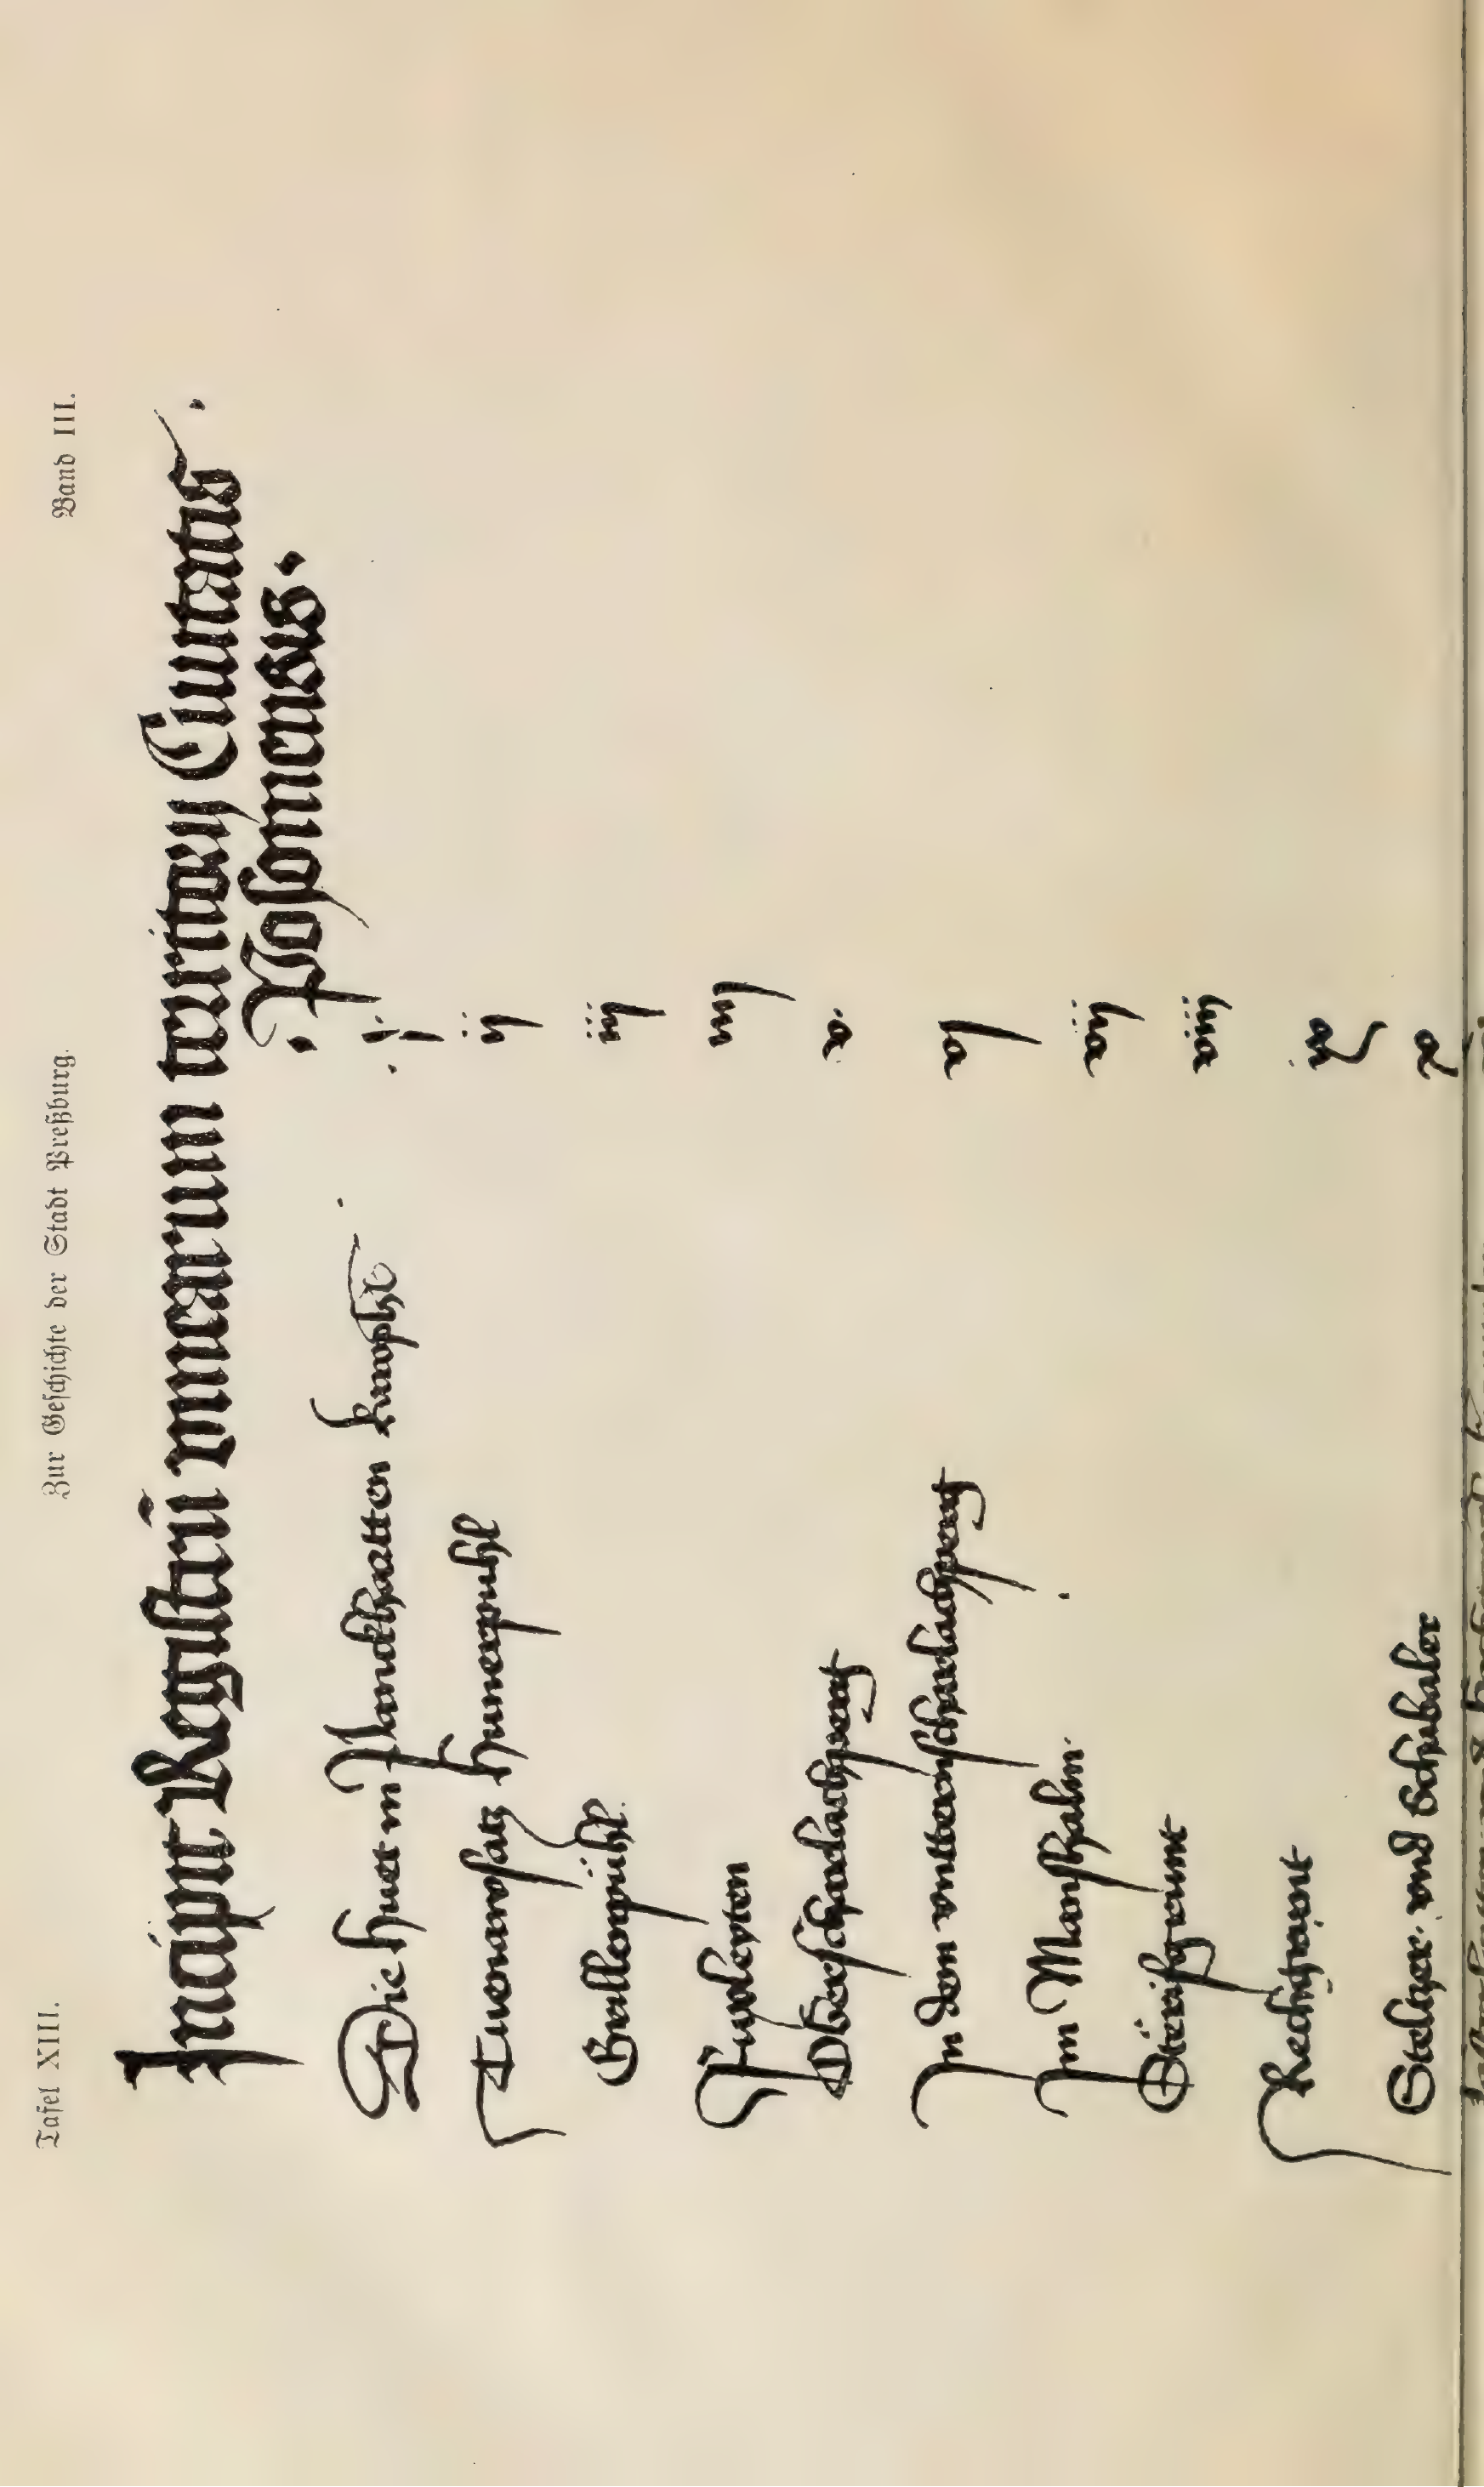 Tafel XIII. Zur Geschichte der Stadt Preßburg. Band III.
Incipit Registrū vinearum territorÿ Ciuitatis
Posoniensis.
Die Huet in Planckhatten knopht i
Tuernawsatz Hunerpuhl ij
Gallenpühl iij
Fuxleyten iiij
Oberscharlachperg v
In dem vnttern scharlachperg vj
Im Marchhalm vij
Dierisgrunt viij
Rechgrunt ix
Steltzer vnd Schebaler x